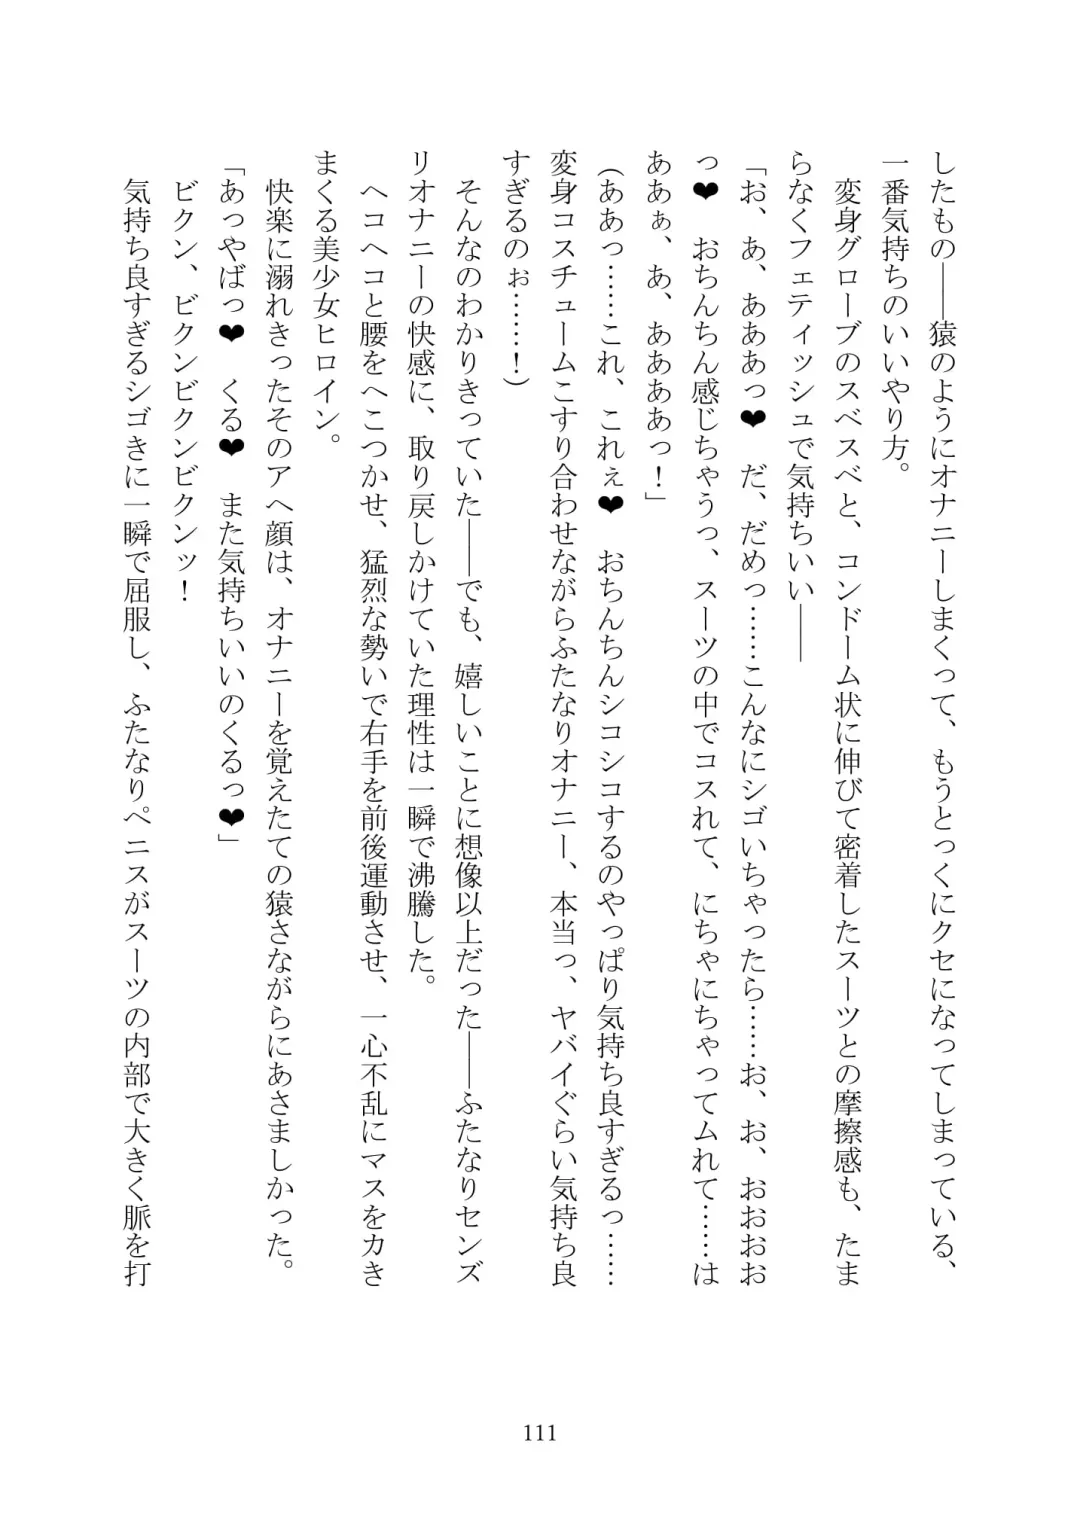 したもの――猿のようにオナニーしまくって、もうとっくにクセになってしまっている、
一番気持ちのいいやり方。
変身グローブのスベスベと、コンドーム状に伸びて密着したスーツとの摩擦感も、たま
らなくフェティッシュで気持ちいい――
「お、あ、あああっ❤　だ、だめっ……こんなにシゴいちゃったら……お、お、おおおお
っ❤　おちんちん感じちゃうっ、スーツの中でコスれて、にちゃにちゃってムれて……は
ああぁ、あ、ああああっ！」
（ああっ……これ、これぇ❤　おちんちんシコシコするのやっぱり気持ち良すぎるっ……
変身コスチュームこすり合わせながらふたなりオナニー、本当っ、ヤバイぐらい気持ち良
すぎるのぉ……！）
そんなのわかりきっていた――でも、嬉しいことに想像以上だった――ふたなりセンズ
リオナニーの快感に、取り戻しかけていた理性は一瞬で沸騰した。
ヘコヘコと腰をへこつかせ、猛烈な勢いで右手を前後運動させ、一心不乱にマスをカき
まくる美少女ヒロイン。
快楽に溺れきったそのアヘ顔は、オナニーを覚えたての猿さながらにあさましかった。
「あっやばっ❤　くる❤　また気持ちいいのくるっ❤」
ビクン、ビクンビクンビクンッ！
気持ち良すぎるシゴきに一瞬で屈服し、ふたなりペニスがスーツの内部で大きく脈を打
111